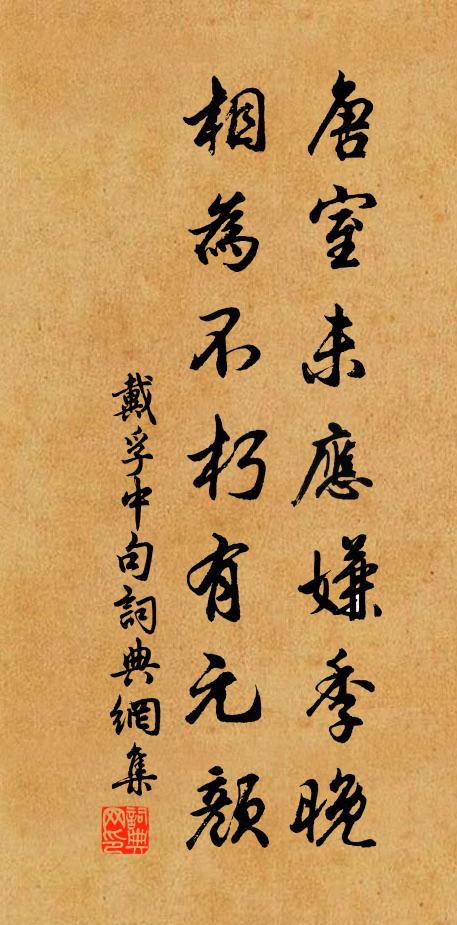 唐室未應嫌季晚
相為不朽有元顏
戴孚中句詞典網集
詞典網印